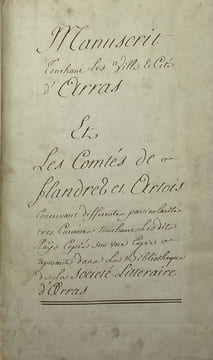 Manuscrit
Touchant Les Ville & Cité
d'Arras
Et
Les Comtés de
flandred et Artois
Concernant differentes particularités
tres Curieuses touchant Lesdits
Païs Copié sur une Copie
reposante dans la Bibliotheque
de la Societé Litteraire
d'Arras